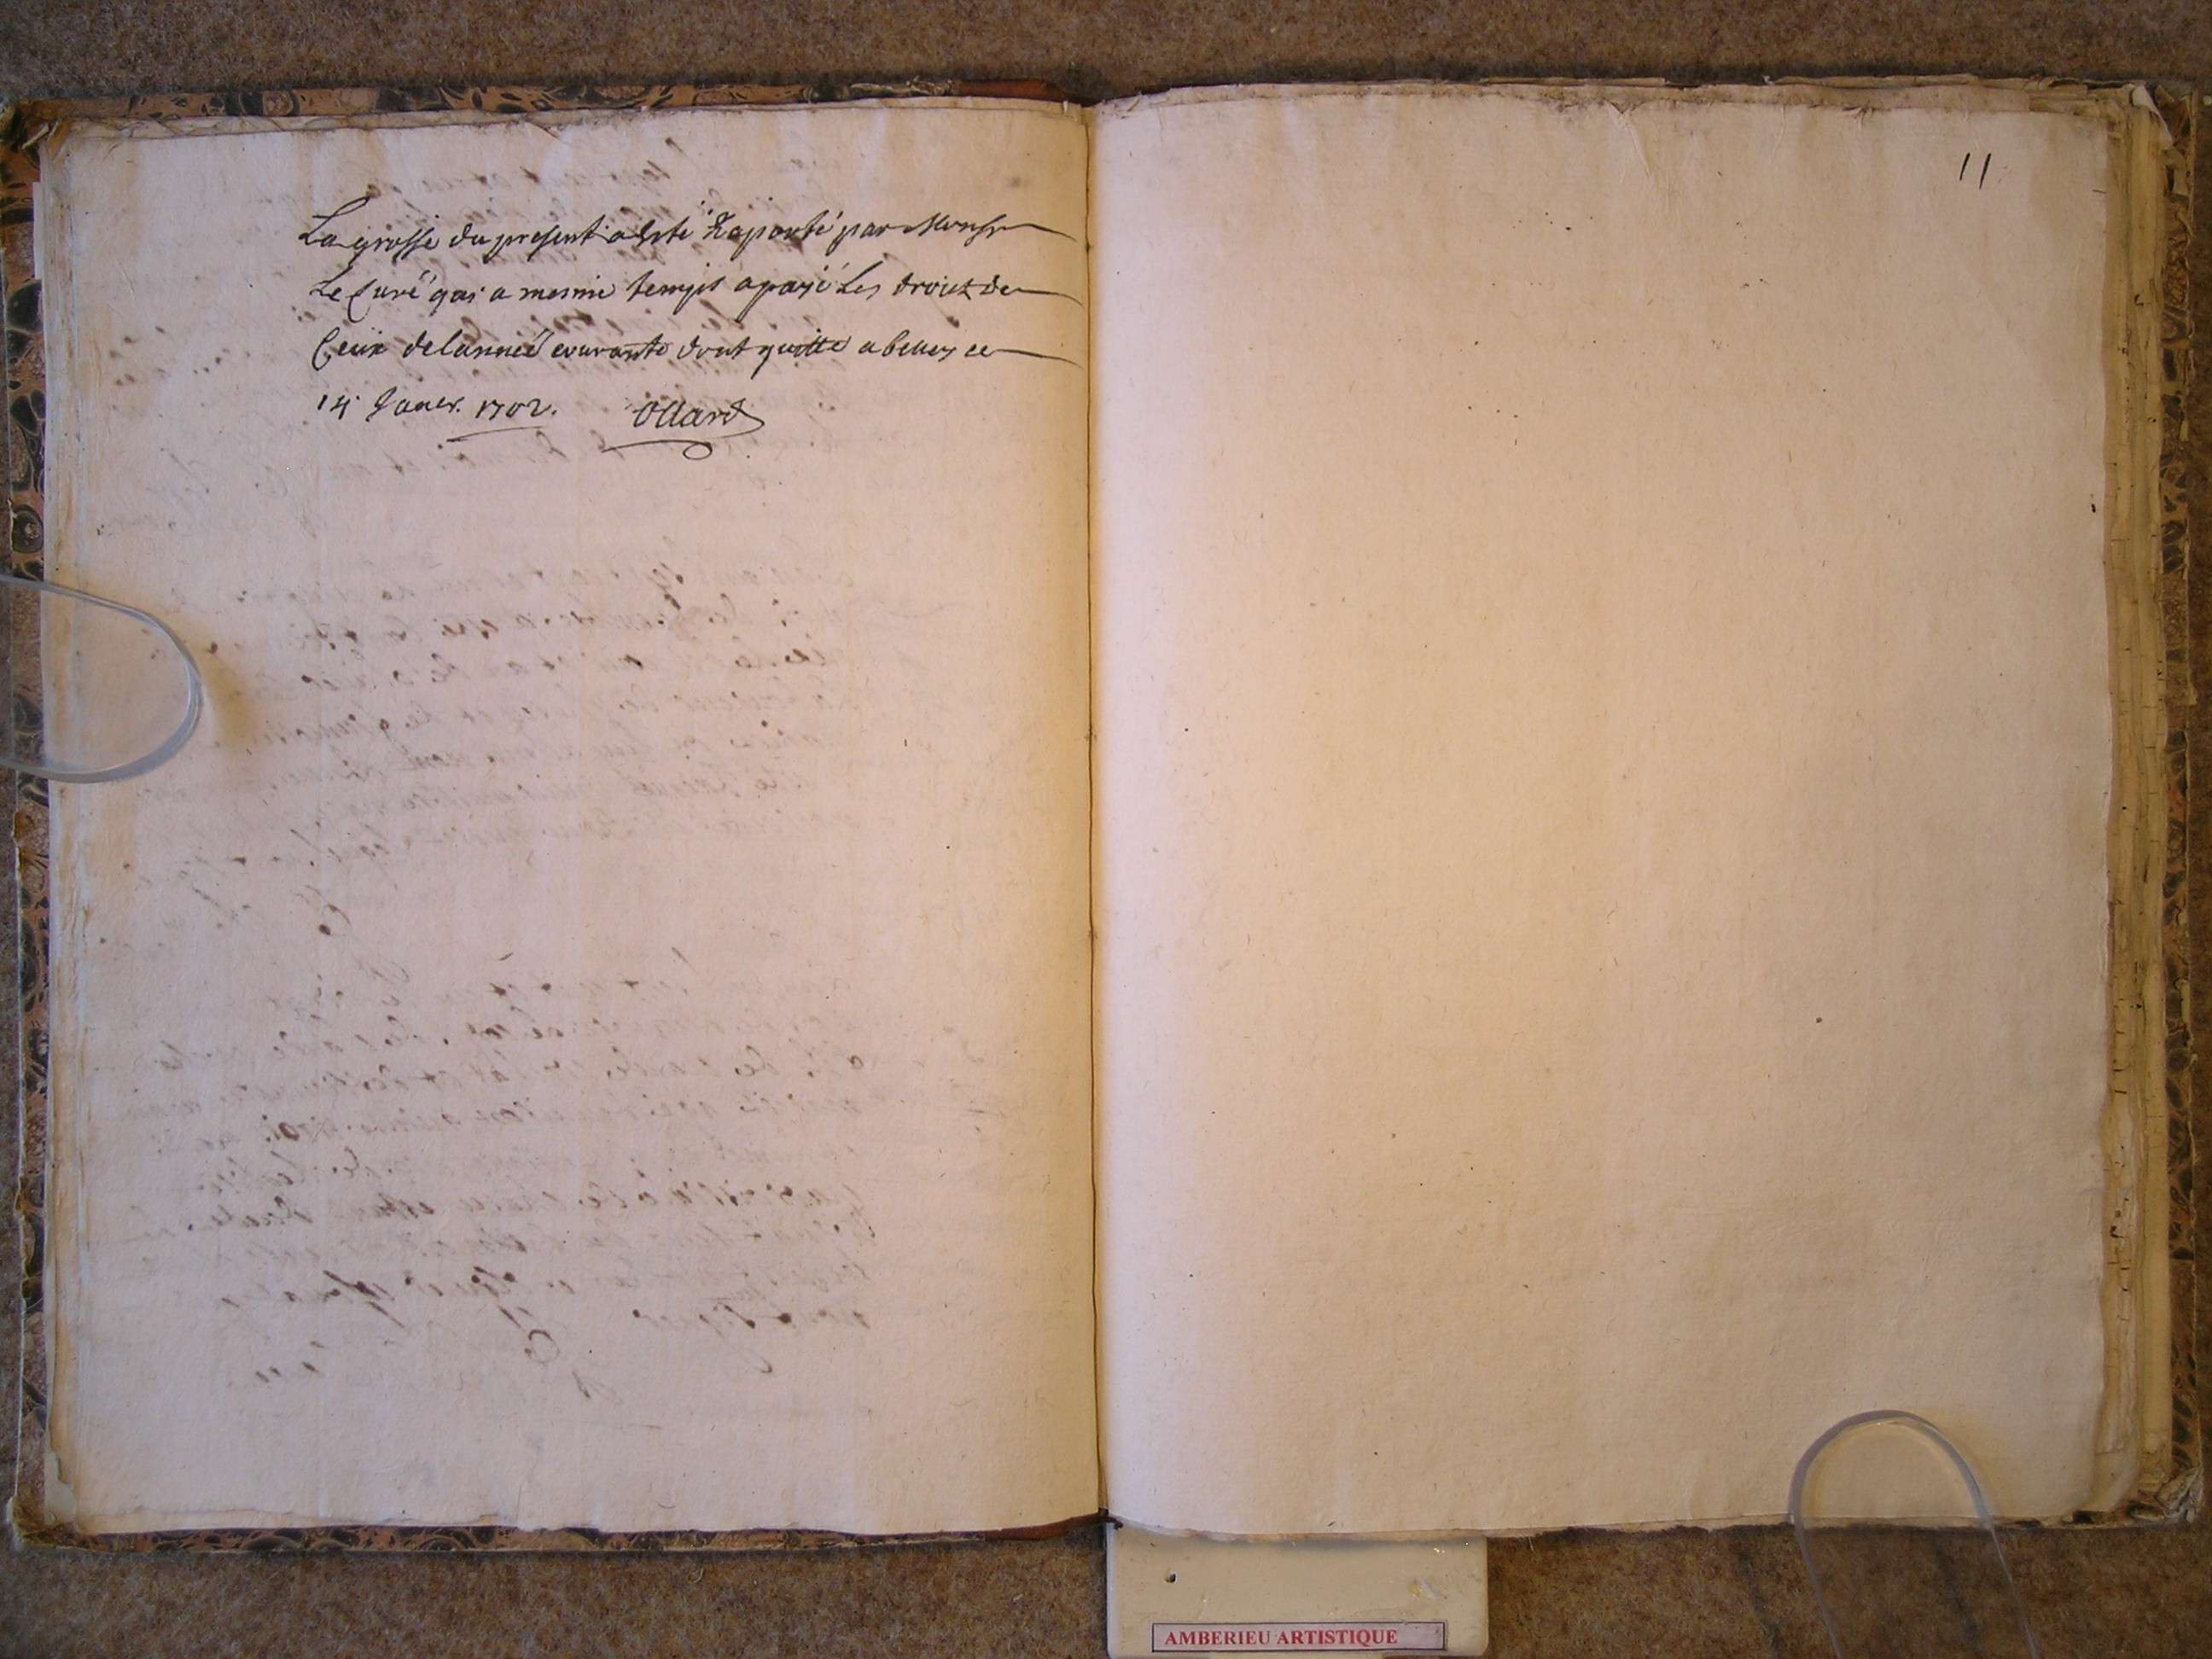 La grosse du present a esté Raporté par Monsr
Le Curé qui a mesme temps a payé Les droits de
Ceux de lannée courante dont quitte a belley ce
14 Janer. 1702. Ollard
11
AMBERIEU ARTISTIQUE